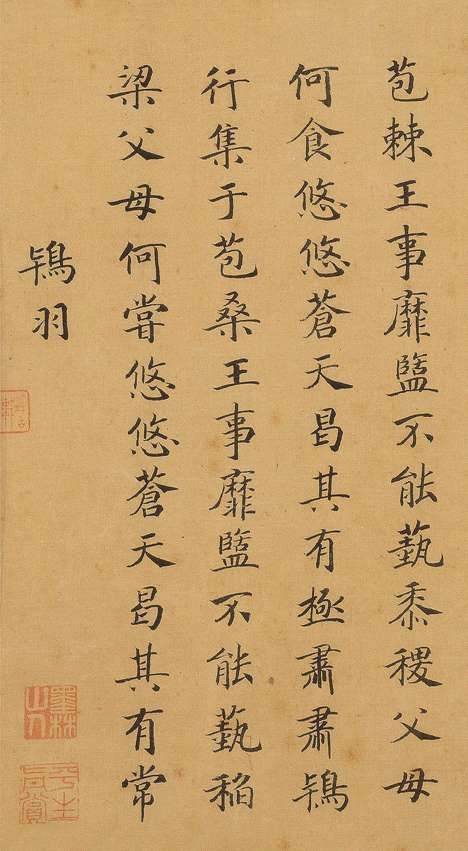 苞棘王事靡盬不能蓺黍稷父母
何食悠悠蒼天曷其有極肅肅鴇
行集于苞桑王事靡盬不能蓺稻
梁父母何嘗悠悠蒼天曷其有常
鴇羽
墨林山人